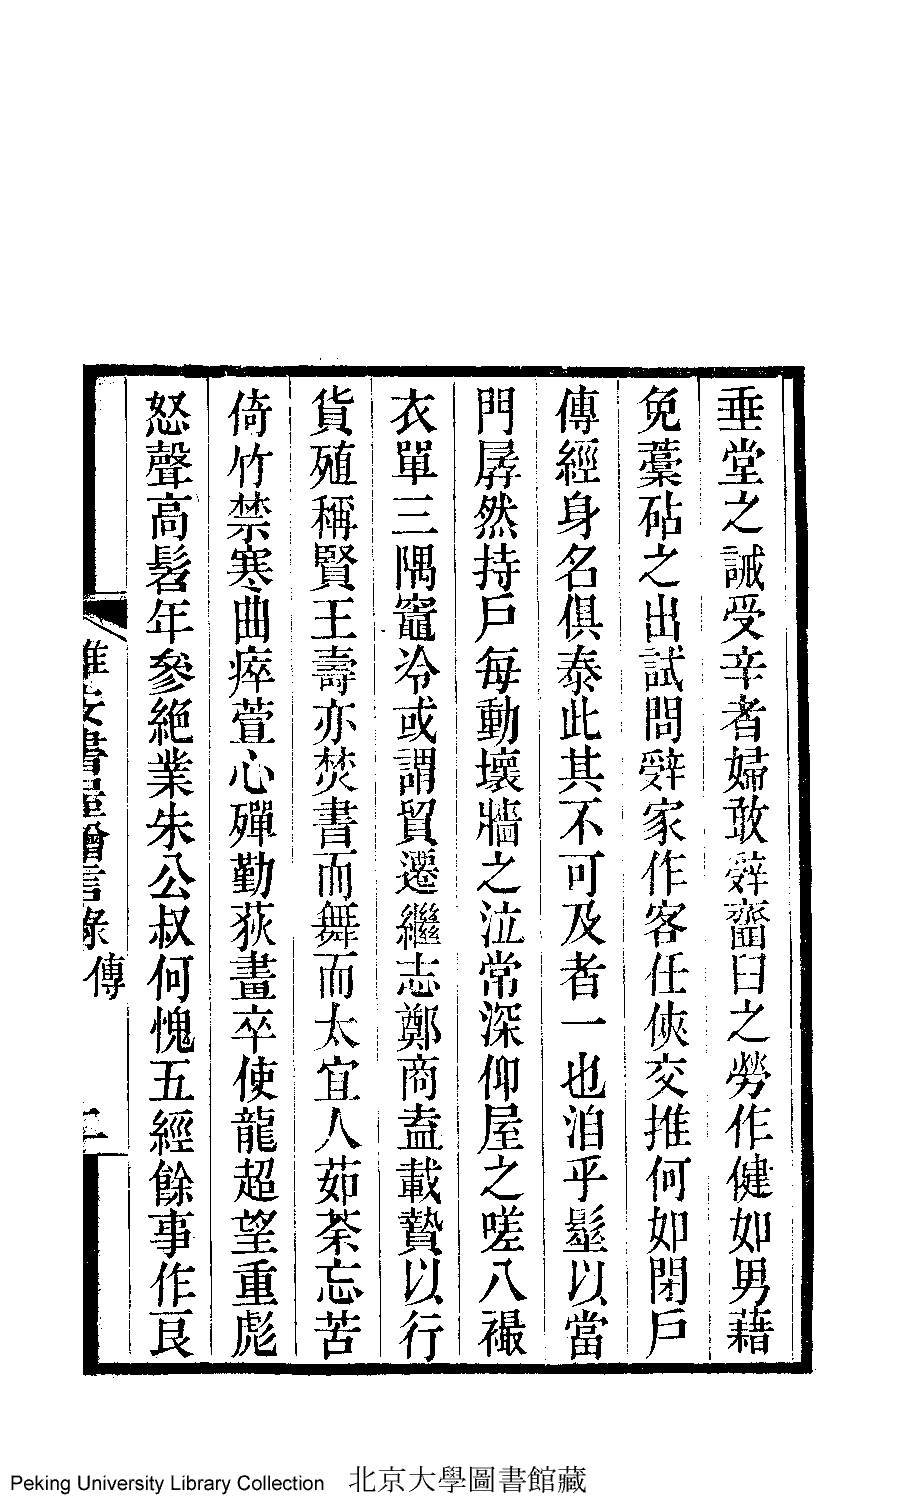 垂堂之誡受辛者婦敢辤齏臼之勞作健如男藉
免藁砧之出試問辤家作客任俠交推何如閉戶
傳經身名俱泰此其不可及者一也洎乎鬽以當
門孱然持戶每動壞牆之泣常深仰屋之嗟八襊
衣單三隅竈冷或謂貿遷繼志鄭商盍載贄以行
貨殖稱賢王壽亦焚書而舞而太宜人茹荼忘苦
倚竹禁寒曲瘁萱心殫勤荻畫卒使龍超望重彪
怒聲高髫年參絕業朱公叔何愧五經餘事作良
雅安書屋贈言錄 傳 二
Peking University Library Collection 北京大學圖書館藏